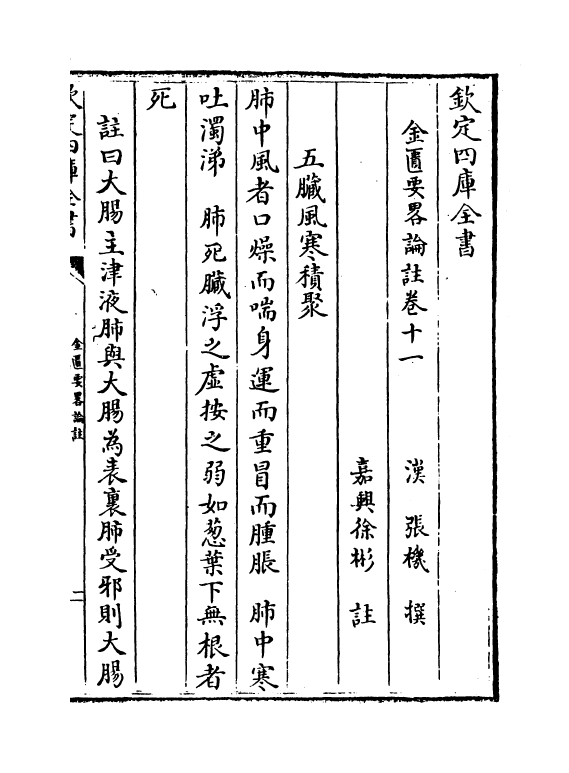 欽定四庫全書
金匱要畧論註卷十一
漢 張機 撰
嘉興徐彬 註
五臟風寒積聚
肺中風者口燥而喘身運而重冒而腫脹 肺中寒
吐濁涕 肺死臟浮之虛按之弱如葱葉下無根者
死
註曰大腸主津液肺與大腸為表裏肺受邪則大腸
欽定四庫全書
金匱要畧論註
二